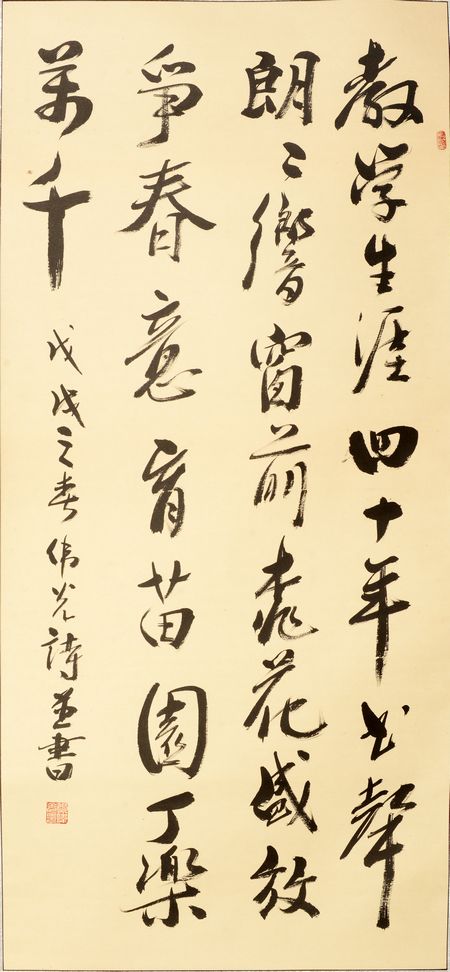 教学生涯四十年书聲
朗〻響窗前桃花盛放
爭春意育苗園丁樂
萬千
戊戌之春伟光詩並書